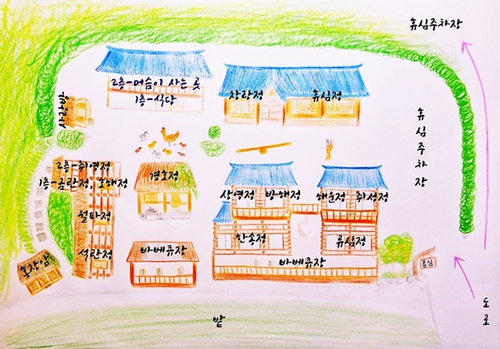 휴심주차장
2층-머슴이 사는 곳
1층-식당
창랑정
휴심정
사랑방
휴심주차장
2층-취영정
1층-금란정, 호해정
경호정
상영정
방해정
해운정
취성정
월파정
한송정
류심정
석란정
바베큐장
바베큐장
농장앞
휴심
도로
밭